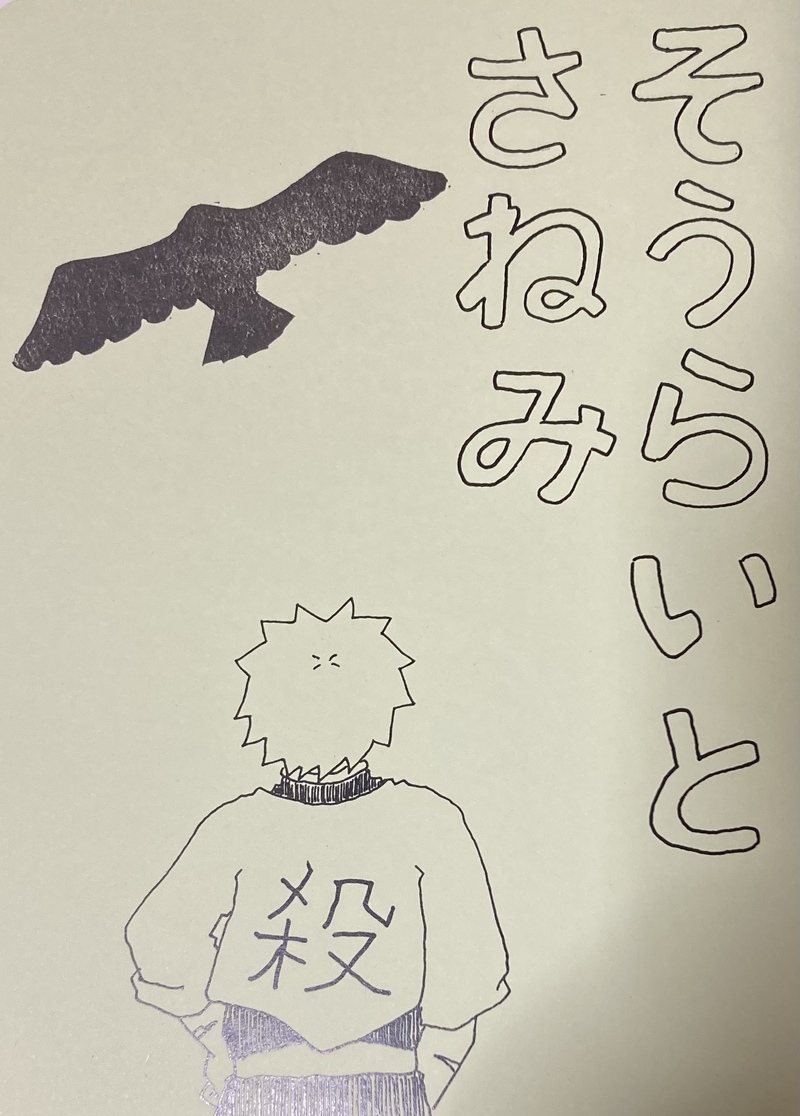 そうらいと
さねみ
殺